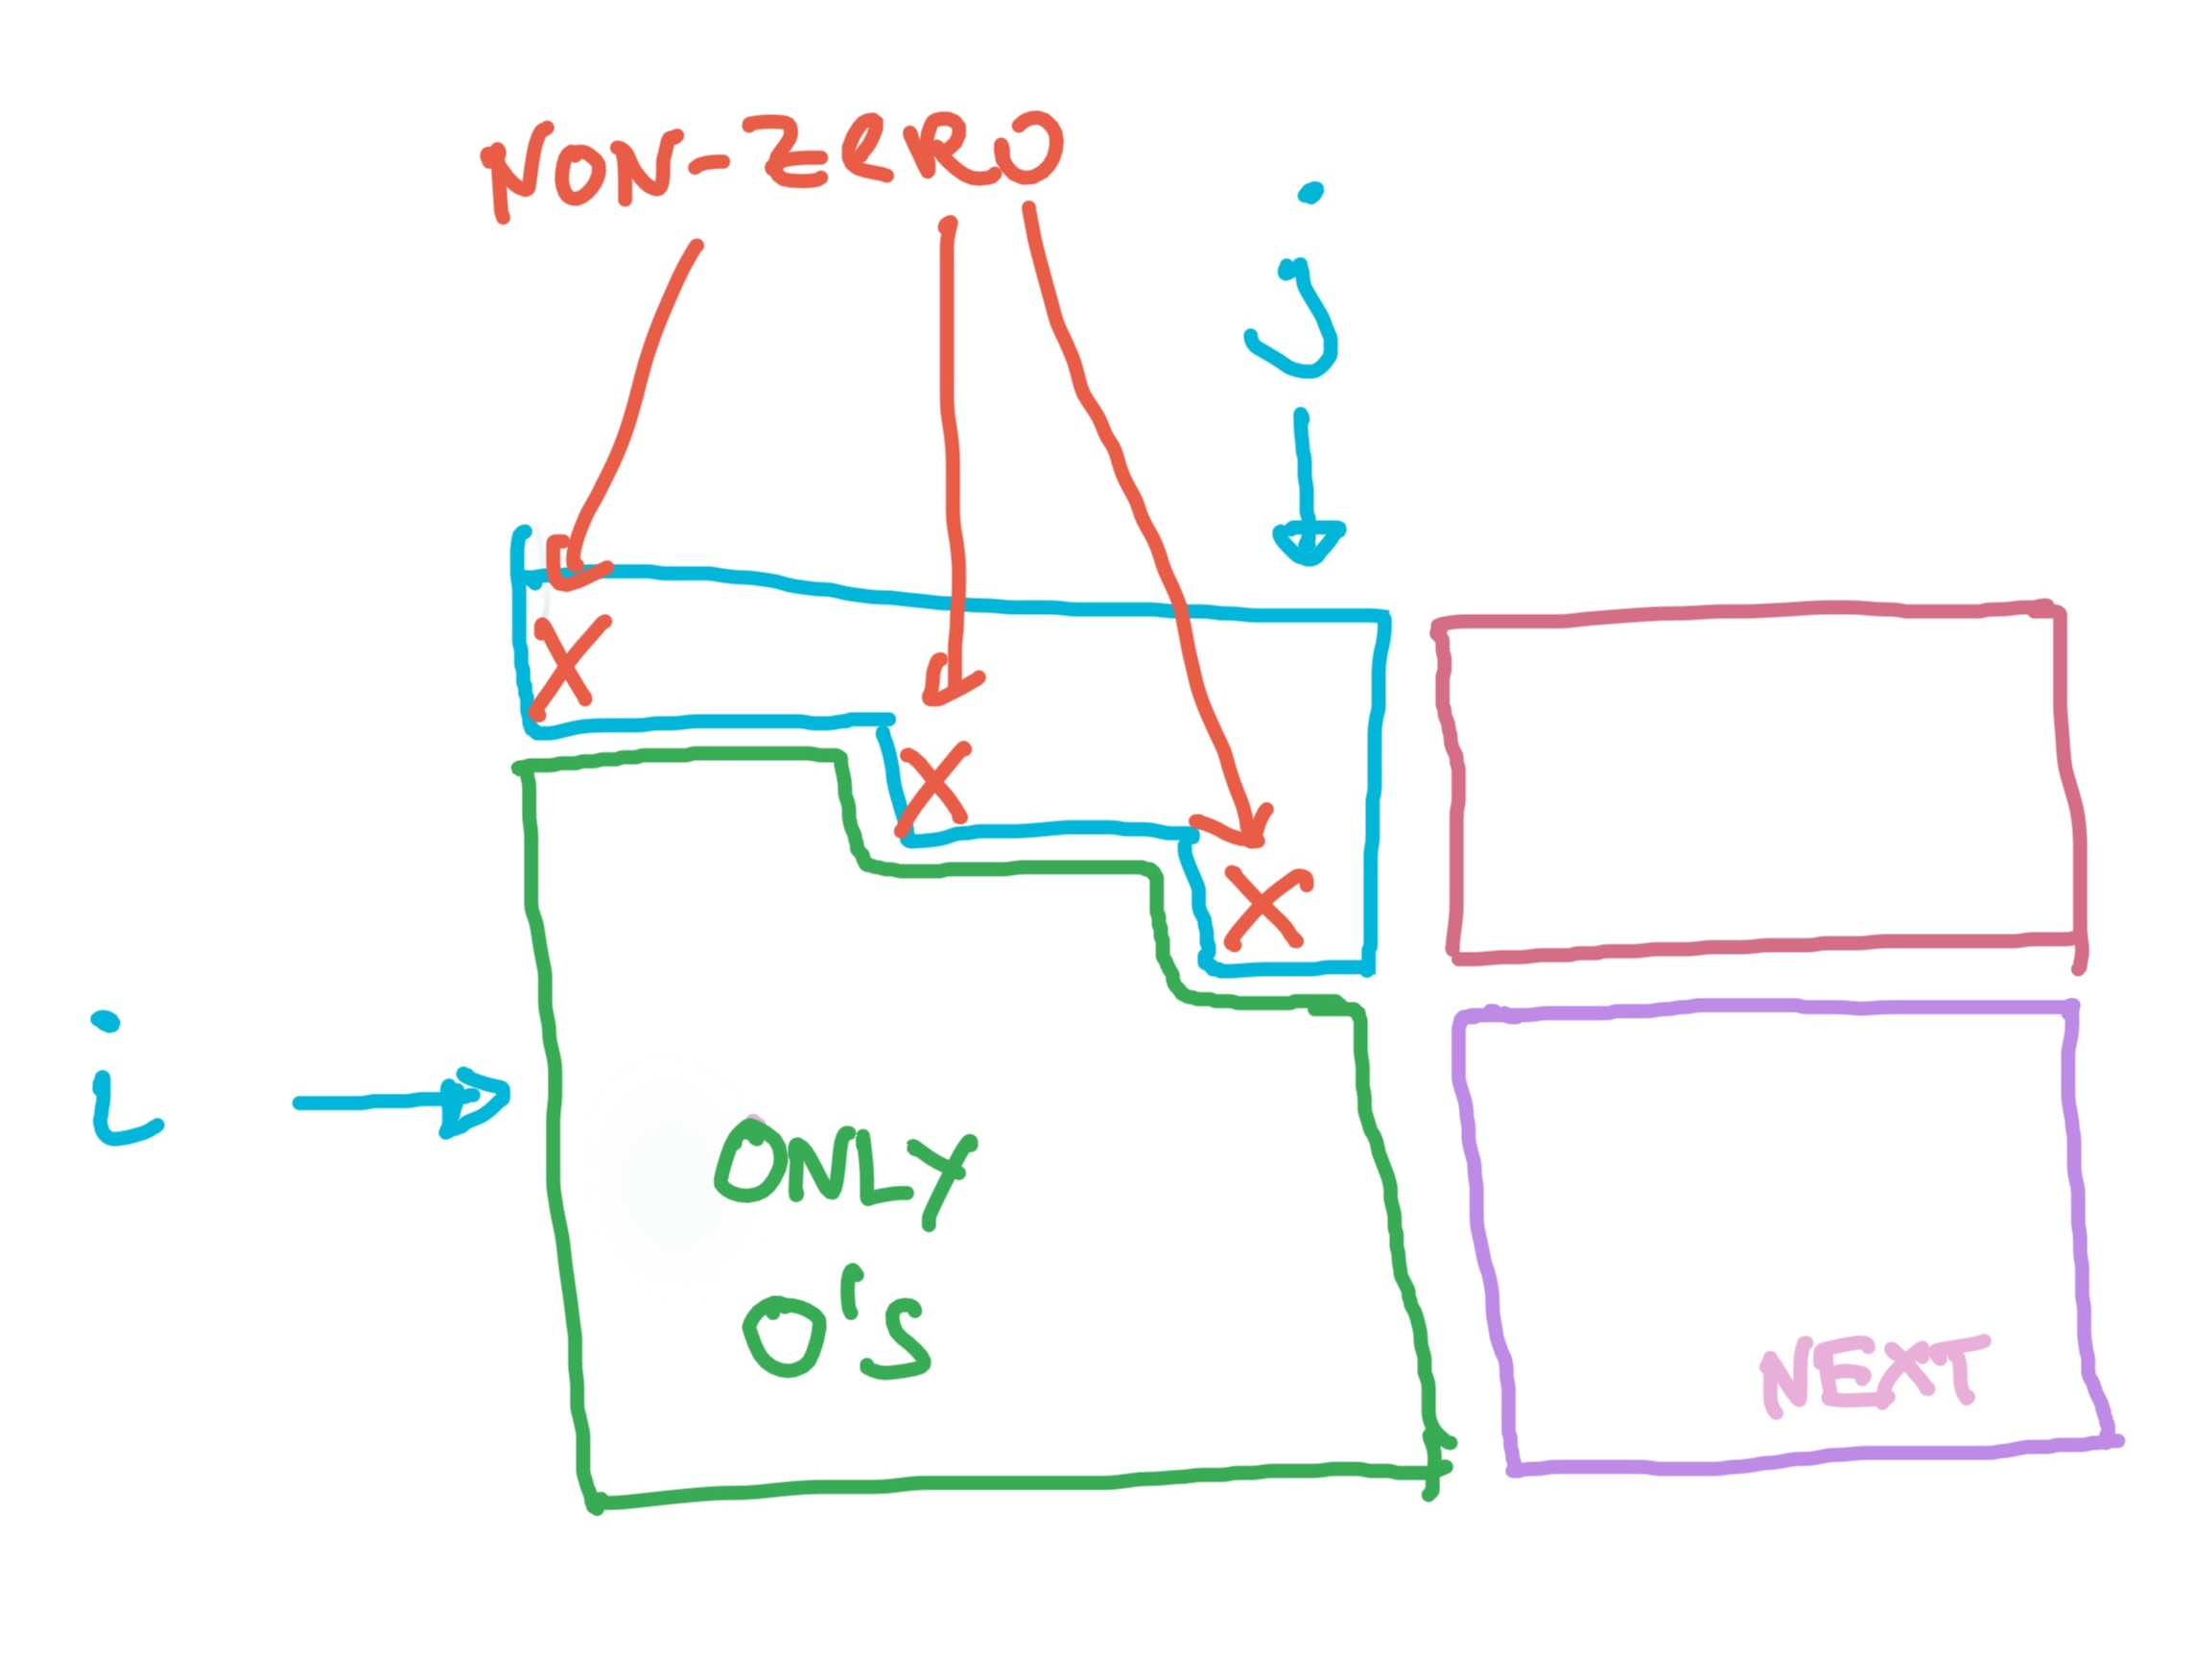 NON-ZERO
j
X
X
X
i
ONLY
0'S
NEXT